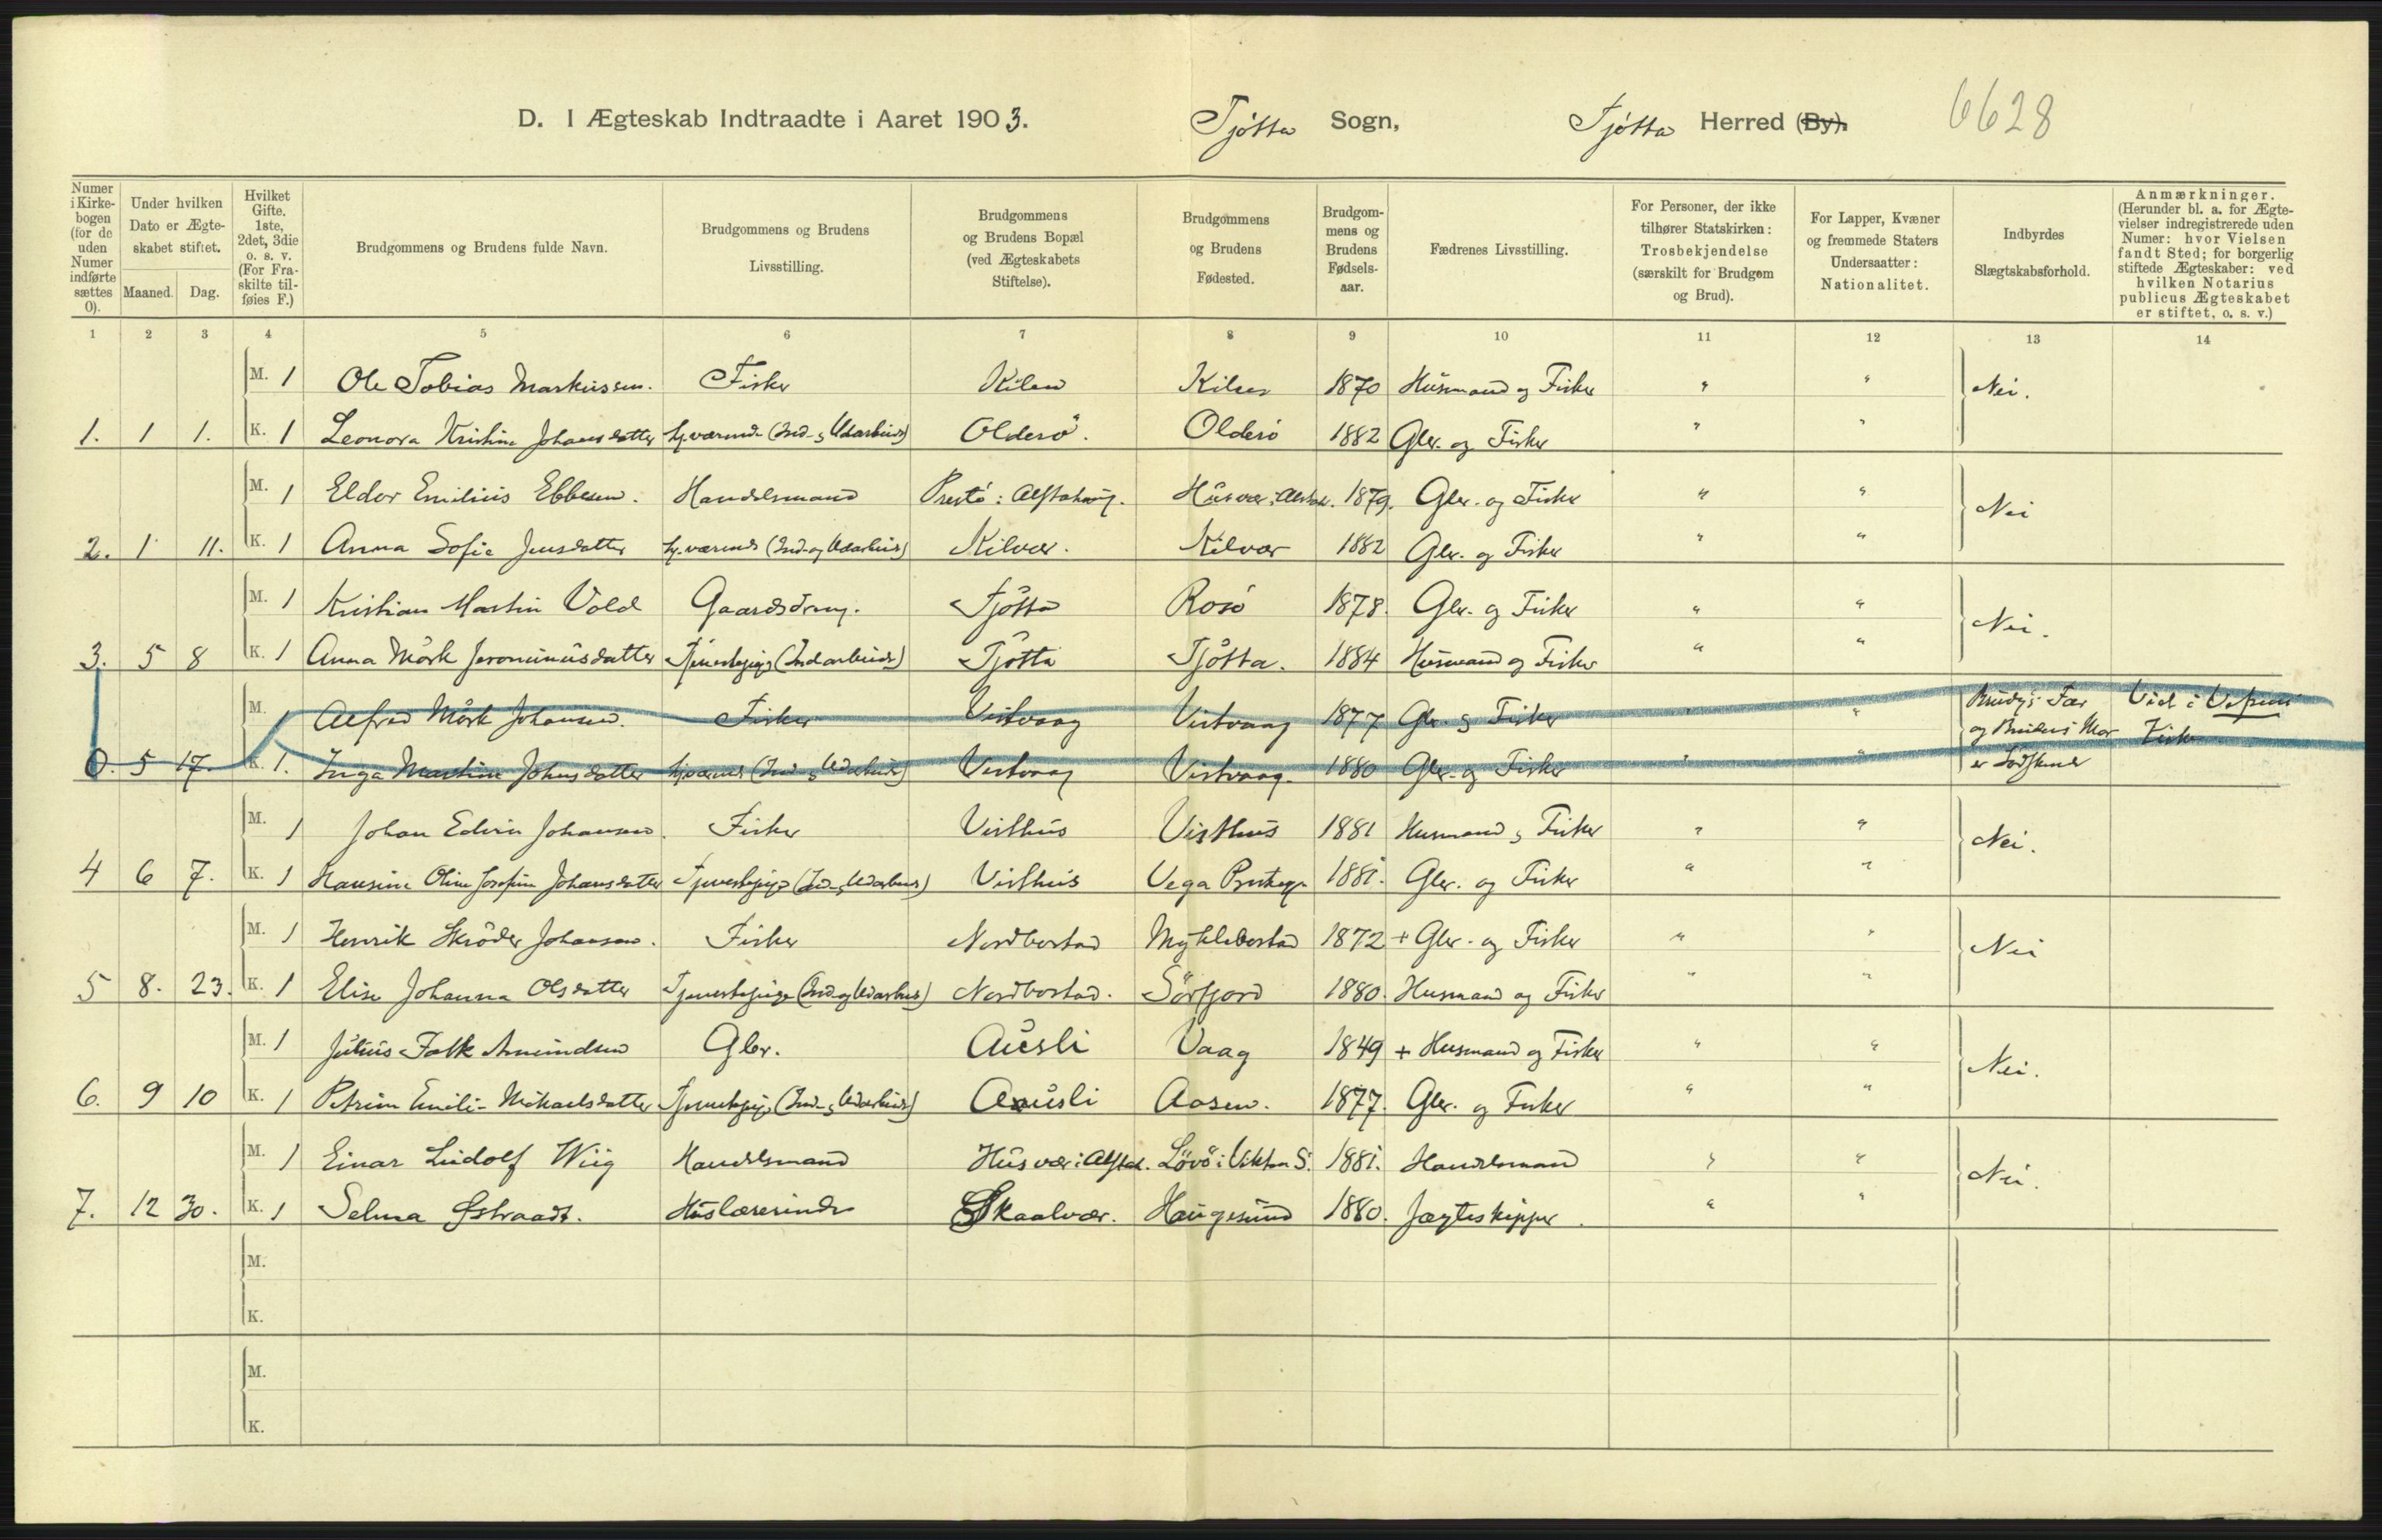 D. I Ægteskab Indtraadte i Aaret 1903. Tjøtta Sogn, Tjøtta Herred (By). 6628
Numer i Kirke-bogen (for de uden Numer indførte sættes 0).
Under hvilken Dato er Ægte-skabet stiftet.
Maaned. Dag.
Hvilket Gifte. 1ste, 2det, 3die o. s. v. (For Fra-skilte til-føies F.)
Brudgommens og Brudens fulde Navn.
Brudgommens og Brudens Livsstilling.
Brudgommens og Brudens Bopæl (ved Ægteskabets Stiftelse).
Brudgommens og Brudens Fødested.
Brudgom-mens og Brudens Fødsels-aar.
Fædrenes Livsstilling.
For Personer, der ikke tilhører Statskirken: Trosbekjendelse (særskilt for Brudgom og Brud).
For Lapper, Kvæner og fremmede Staters Undersaatter: Nationalitet.
Indbyrdes Slægtskabsforhold.
Anmærkninger. (Herunder bl. a. for Ægte-vielser indregistrerede uden Numer: hvor Vielsen fandt Sted; for borgerlig stiftede Ægteskaber: ved hvilken Notarius publicus Ægteskabet er stiftet, o. s. v.)
1 2 3 4 5 6 7 8 9 10 11 12 13 14
M. 1 Ole Tobias Markussen. Fisker Kilen Kilen 1870 Husmand og Fisker " " Nei.
1. 1 1. K. 1 Leonora Kristine Johansdatter hj.værende (Ind- og Udarbeide) Olderö. Olderö 1882 Gbr. og Fisker " "
M. 1 Eldor Emilius Ebbesen. Handelsmand Prestö i Alstahaug. Husvær i Alstah. 1879. Gbr. og Fisker " " Nei
2. 1 11. K. 1 Anna Sofie Jensdatter hj.værende (Ind- og Udarbeide) Kilvær. Kilvær 1882 Gbr. og Fisker " "
M. 1 Kristian Martin Vold Gaardsdreng. Tjötta Rosö 1878. Gbr. og Fisker " " Nei.
3. 5 8 K. 1 Anna Mörk Jeronimusdatter Tjenestepige (Indarbeide) Tjötta Tjötta. 1884 Husmand og Fisker " "
M. 1 Alfred Mörk Johansen. Fisker Vistvaag Vistvaag 1877 Gbr. og Fisker " " Brudgs Far Viet i Vefsen
0. 5 17. K. 1. Inga Martine Johnsdatter hjværende (Ind- og Udarbeide) Vistvaag Vistvaag. 1880 Gbr. og Fisker " " og Brudens Mor
er Södskend
M. 1 Johan Edvin Johansen. Fisker Visthus Visthus 1881 Husmand og Fisker " " Nei.
4 6 7. K. 1 Hansine Oline Josefine Johansdatter Tjenestepige (Ind- og Udarbeid) Visthus Vega 1881. Gbr. og Fisker " "
M. 1 Henrik Skröder Johansen. Fisker Nordbostad Myklebostad 1872 + Gbr. og Fisker " " Nei
5 8. 23. K. 1 Elise Johanna Olsdatter Tjenestepige (Ind og Udarbeid) Nordbostad. Sörfjord 1880. Husmand og Fisker " "
M. 1 Julius Falk Amundsen Gbr. Ausli Vaag 1849 + Husmand og Fisker " " Nei.
6. 9 10 K. 1 Petrine Emilie Mikaelsdatter Tjenestepige (Ind- og Udarbeide) Ausli Aasen. 1877. Gbr. og Fisker " "
M. 1 Einar Ludolf Wiig Handelsmand Husvær i Alstah. Lövö i Vikten S. 1881. Handelsmand " " Nei.
7. 12 30. K. 1 Selma Østraadt. Huslærerinde Skaalvær. Haugesund 1880. Jægteskipper. " "
M.
K.
M.
K.